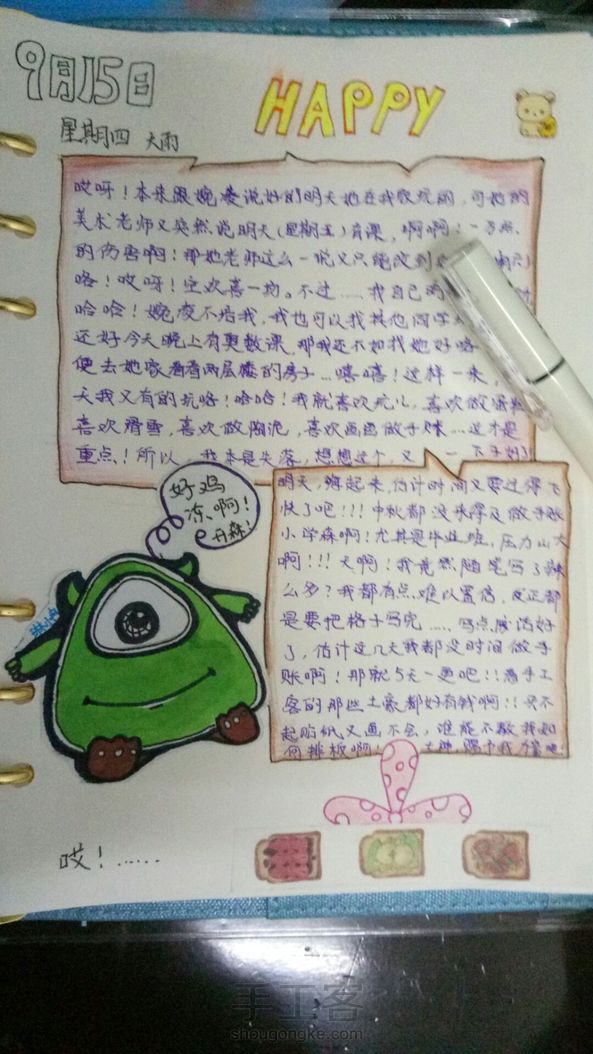 9月15日
HAPPY
星期四 大雨
哎呀！本来跟婉凌说好的明天她在我家玩的，可她的
美术老师又突然说明天(星期五)有课，啊啊！一万点
的伤害啊！那她老师这么一说又只能改到
咯！哎呀！空欢喜一场。不过……我自己
哈哈！婉凌不陪我，我也可以找其他同学
还好今天晚上有奥数课，那我还不如找她好咯
便去她家看看两层楼的房子…嘻嘻！这样一来，
天我又有的玩咯！哈哈！我就喜欢玩儿，喜欢做
喜欢滑雪，喜欢做陶泥，喜欢画画做手账…这才是
重点！所以，我本是失落，想想这个，又 一下子
好鸡
冻啊！
明天，嗨起来，估计时间又要过得飞
快了吧！！！中秋都没来得及做手账
小学森啊！尤其是毕业班，压力山大
啊！！！天啊！我竟然随笔写了辣
么多？我都有点难以置信，反正都
是要把格子写完……，写点废话好
了，估计这几天我都没时间做手
账啊！那就5天一更吧！！看手工
客的那些土豪都好有钱啊！！买不
起贴纸又画不会，谁能不教我如
何排板啊
哎！……
手工客
shougongke.com